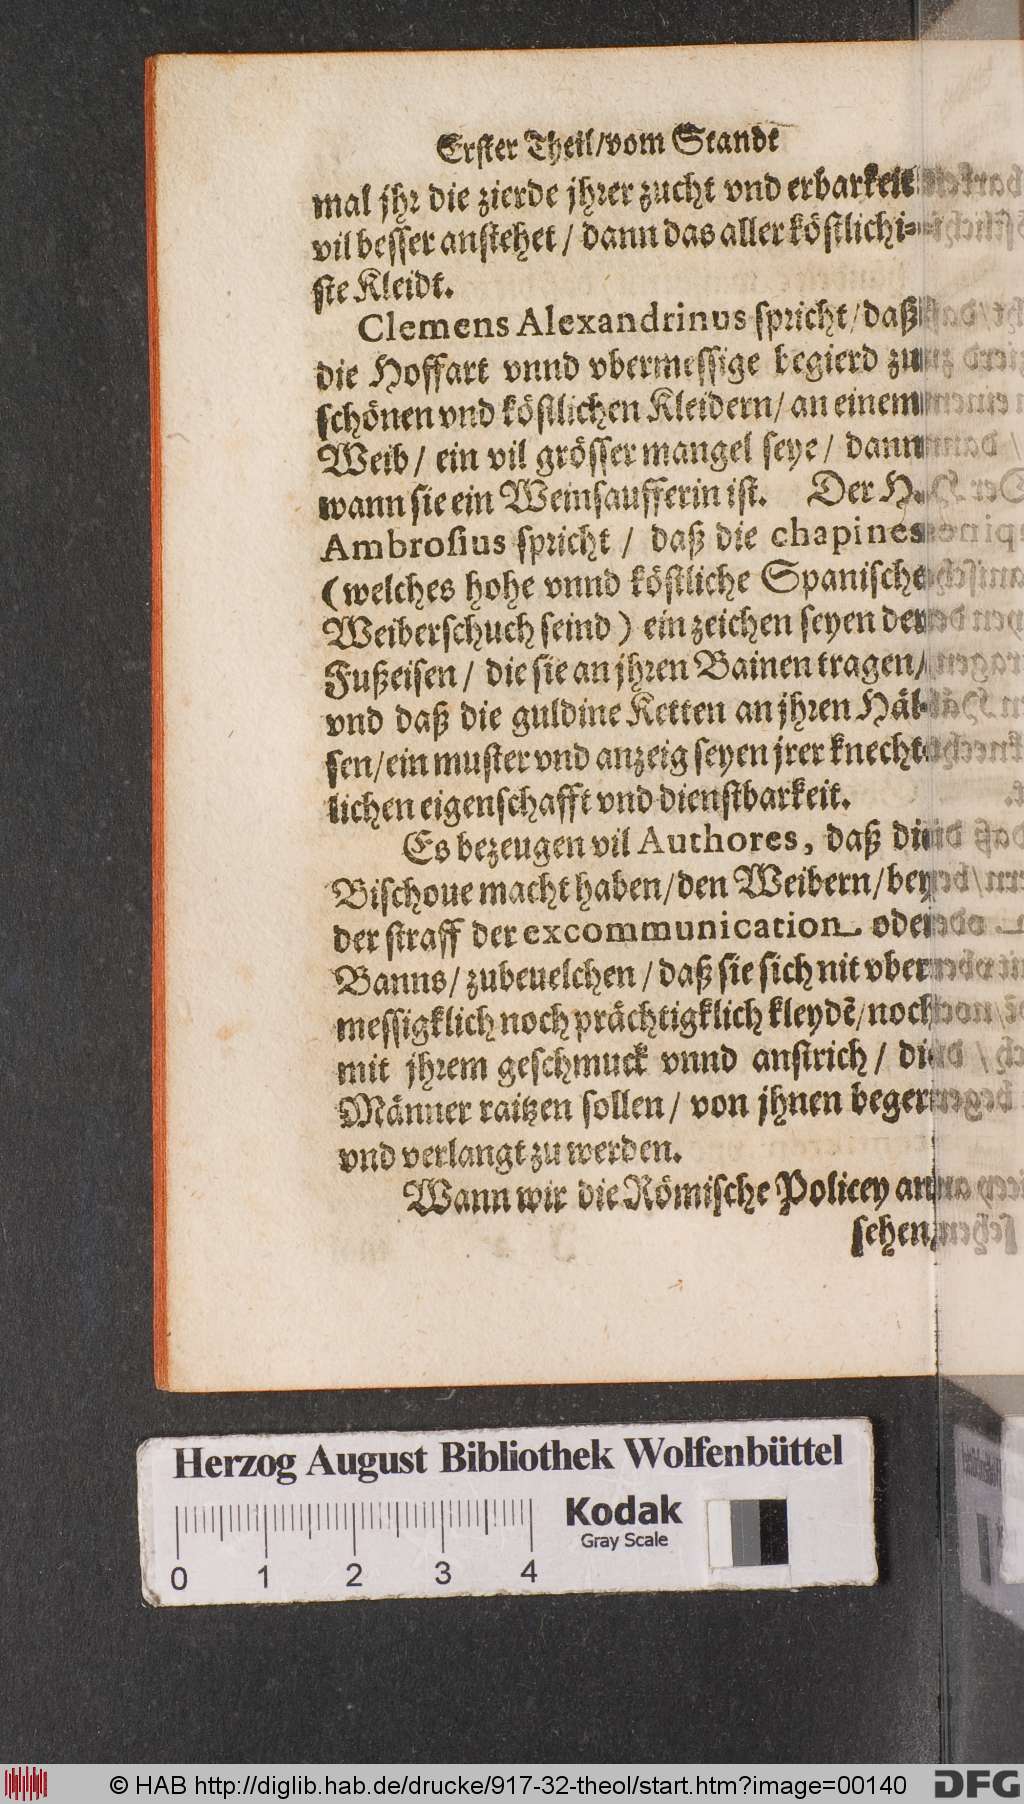 Erster Theil/vom Standt
mal jhr die zierde jhrer zucht vnd erbarkeit
vil besser anstehet / dann das aller köstlichi-
ste Kleidt.
Clemens Alexandrinus spricht/daß
die Hoffart vnnd vbermessige begierd zu
schönen vnd köstlichen Kleidern/ an einem
Weib / ein vil grösser mangel seye / dann
wann sie ein Weinsaufferin ist. Der H.
Ambrosius spricht / daß die chapines
(welches hohe vnnd köstliche Spanische
Weiberschuch seind) ein zeichen seyen der
Fußeisen / die sie an jhren Bainen tragen/
vnd daß die guldine Ketten an jhren Häl-
sen/ein muster vnd anzeig seyen jrer knecht-
lichen eigenschafft vnd dienstbarkeit.
Es bezeugen vil Authores, daß die
Bischoue macht haben/den Weibern/bey
der straff der excommunication oder
Banns/zubeuelchen/daß sie sich nit vber
messigklich noch prächtigklich kleydẽ/noch
mit jhrem geschmuck vnnd anstrich / die
Männer raitzen sollen/ von jhnen begert
vnd verlangt zu werden.
Wann wir die Römische Policey an
sehen,
Herzog August Bibliothek Wolfenbüttel
Kodak
Gray Scale
0 1 2 3 4
© HAB http://diglib.hab.de/drucke/917-32-theol/start.htm?image=00140
DFG